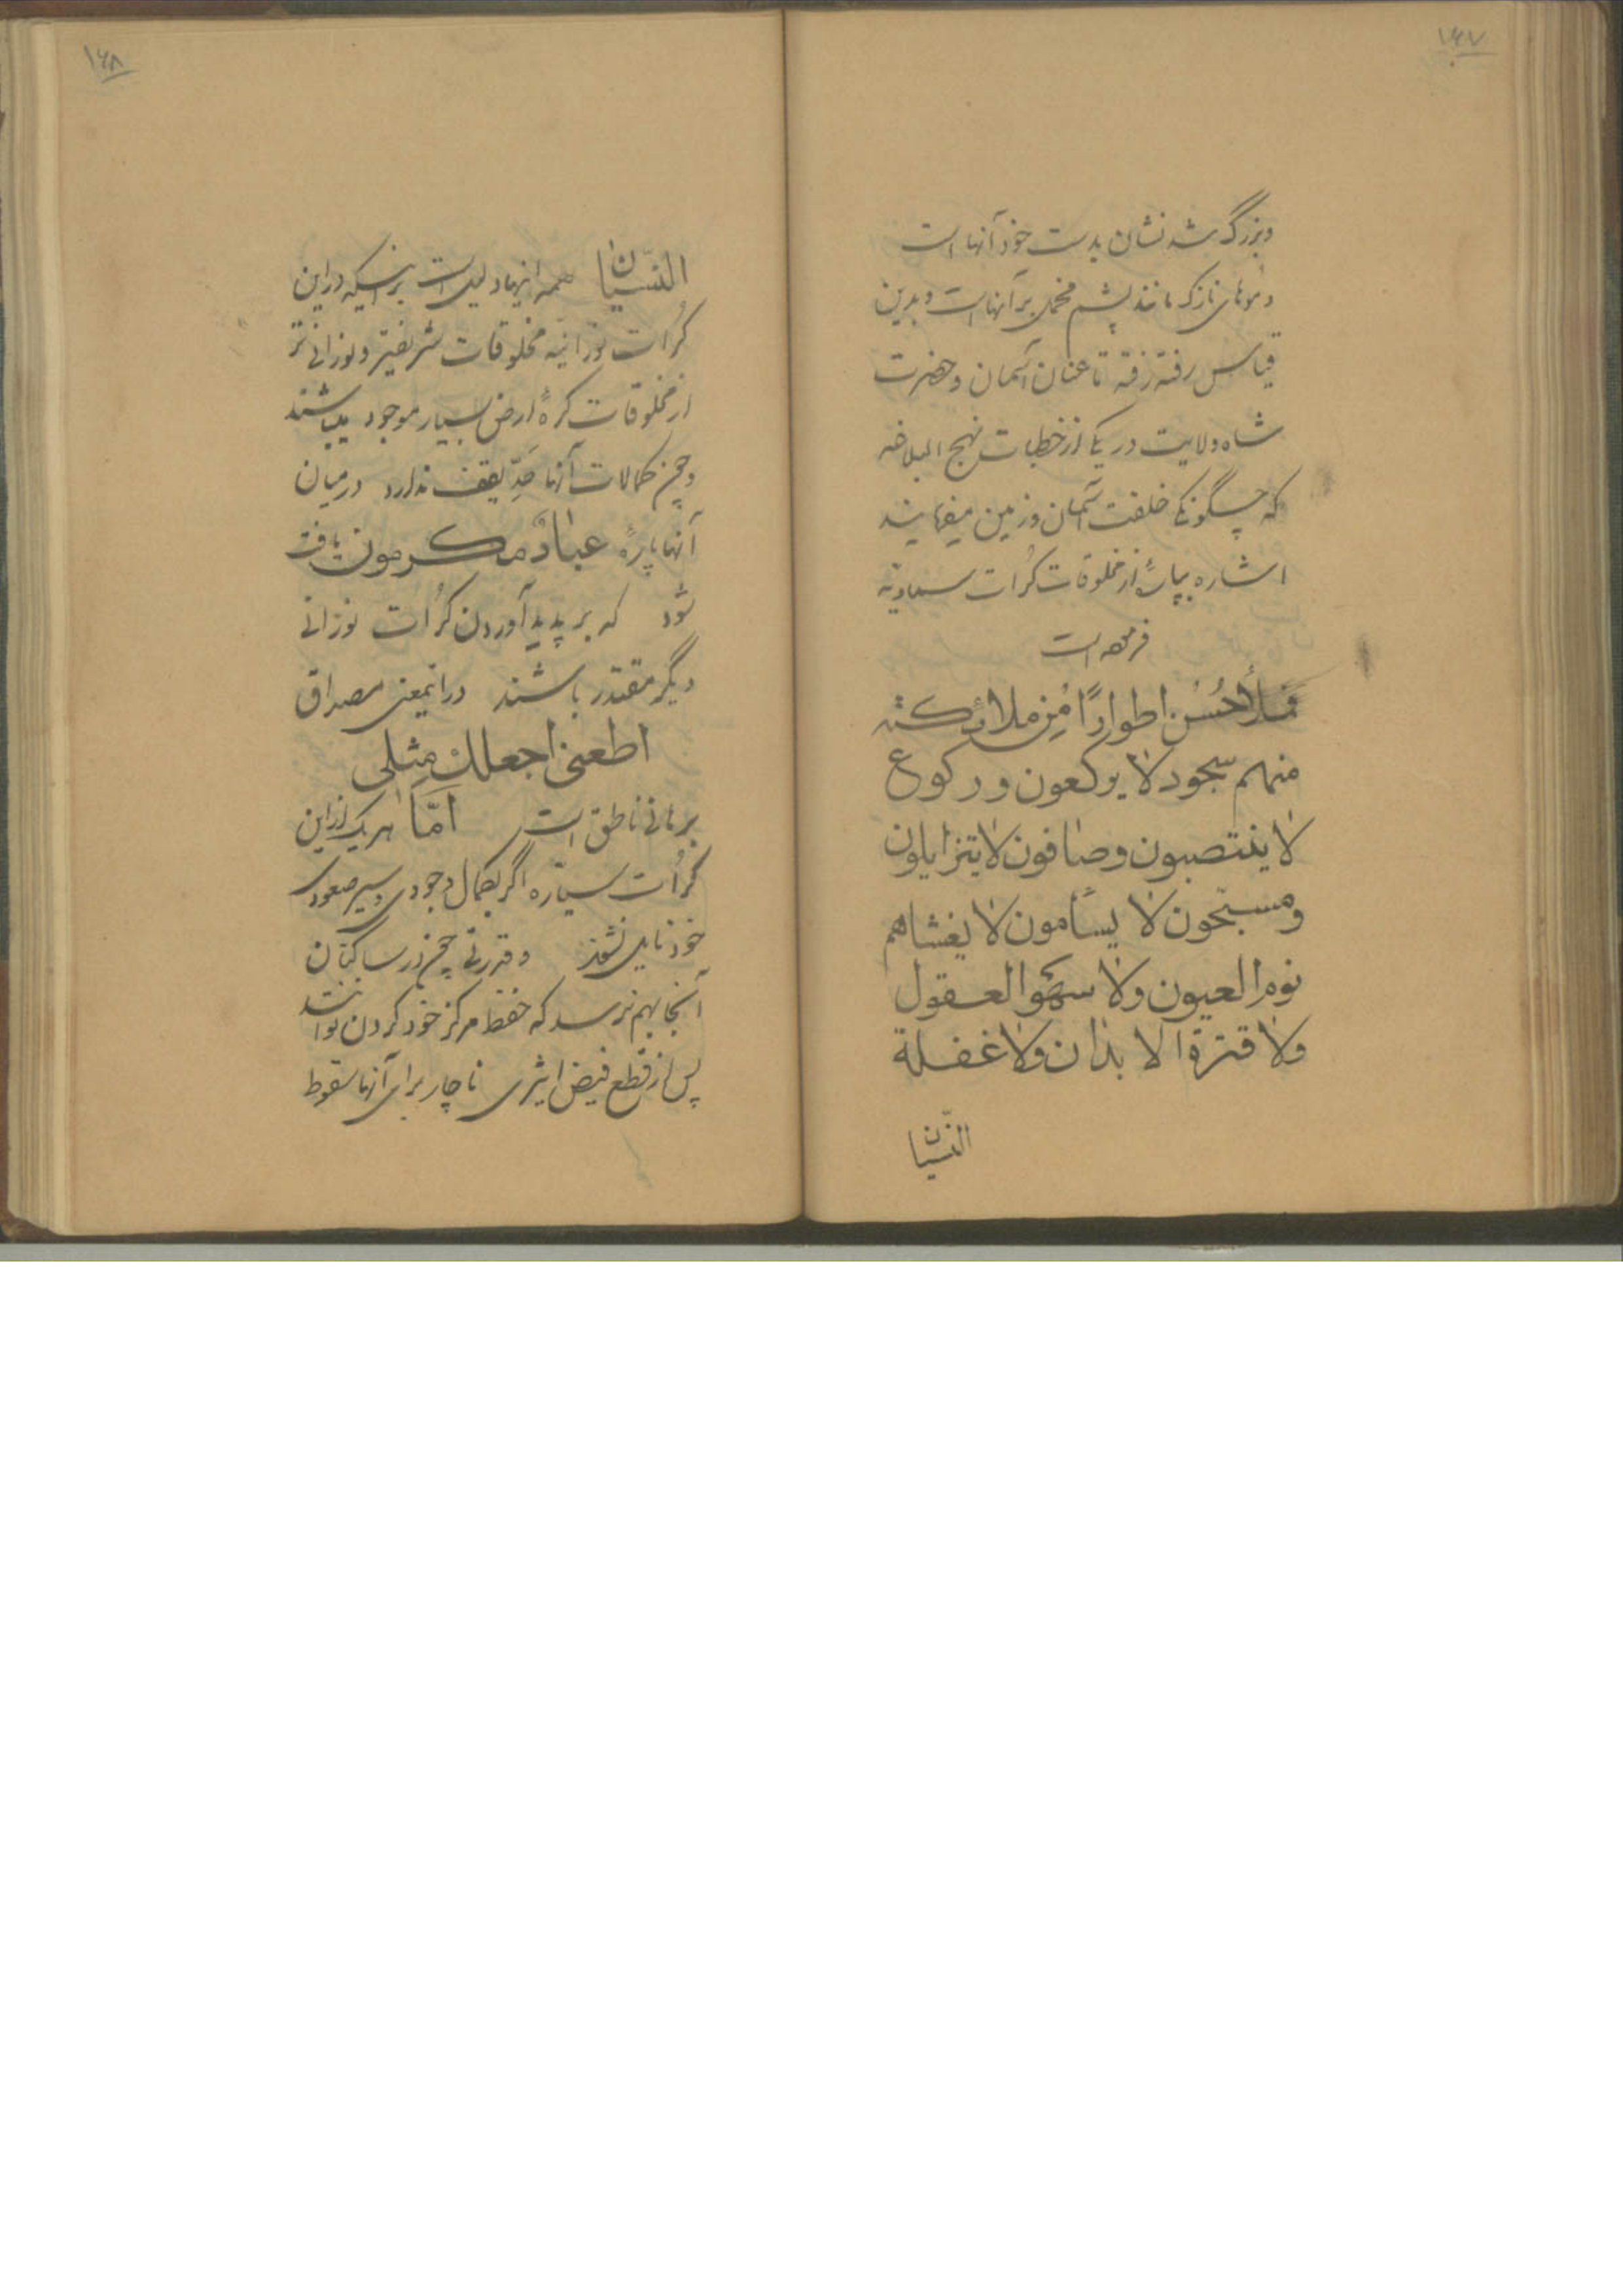 ۱۶۷
و بزرگ شدنشان بدست خود آنها است
و موهای نازک مانند پشم مخمل بر آنهاست و بدین
قیاس رفته رفته تا عنان آسمان و حضرت
شاه ولایت در یکی از خطبات نهج البلاغه
که چگونگی خلقت آسمان و زمین میفرمایند
اشاره بپارهٔ از مخلوقات کُرات سماویّه
فرموده است
اطوارًا مِن ملائکته
منهم سجود لا یرکعون و رکوع
لا ینتصبون و صافون لا یتزایلون
و مسبّحون لا یسأمون لا یغشاهم
نوم العیون ولا سهو العقول
ولا فترة الابدان ولا غفلة
النّسیان
۱۶۸
النّسیان همه اینها دلیل است بر اینکه در این
کُرات نورانیّه مخلوقات شریفتر و نورانی تر
از مخلوقات کرهٔ ارض بسیار موجود میباشند
و چون کمالات آنها حَدِّ یقف ندارد در میان
آنها پارهٔ عبادٌ مکرمون یافت
شود که بر پدید آوردن کُرات نورانی
دیگر مقتدر باشند در اینمعنی مصداق
اطعنی اجعلك مِثلی
برهانی ناطق است امّا هر یک از این
کُرات سیّاره اگر بکمال وجودی و سیر صعودی
خود نایل نشوند و قدرتی چون در ساکنان
آنجا بهم نرسد که حفظ مرکز خود کردن توانند
پس از قطع فیض اثیری ناچار برای آنها سقوط